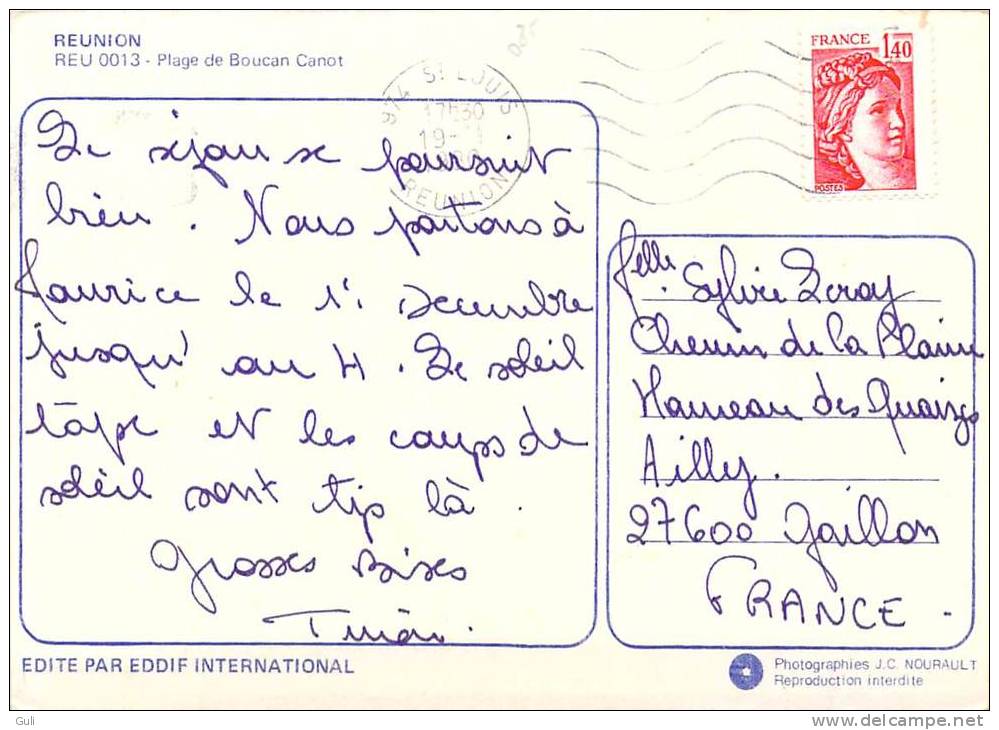 REUNION
REU 0013 - Plage de Boucan Canot
974 ST LOUIS
17H30
19-
REUNION
FRANCE
1,40
POSTES
Le séjour se poursuit
bien. Nous partons à
Maurice le 1er Décembre
jusqu'au 4. Le soleil
tape et les coups de
soleil sont tjs là.
Grosses Bises
Melle Sylvie Leroy
Chemin de la Plaine
Hameau des Quaizes
Ailly.
27600 Gaillon
FRANCE.
EDITE PAR EDDIF INTERNATIONAL
Photographies J.C. NOURAULT
Reproduction interdite
Guli
delcampe.net